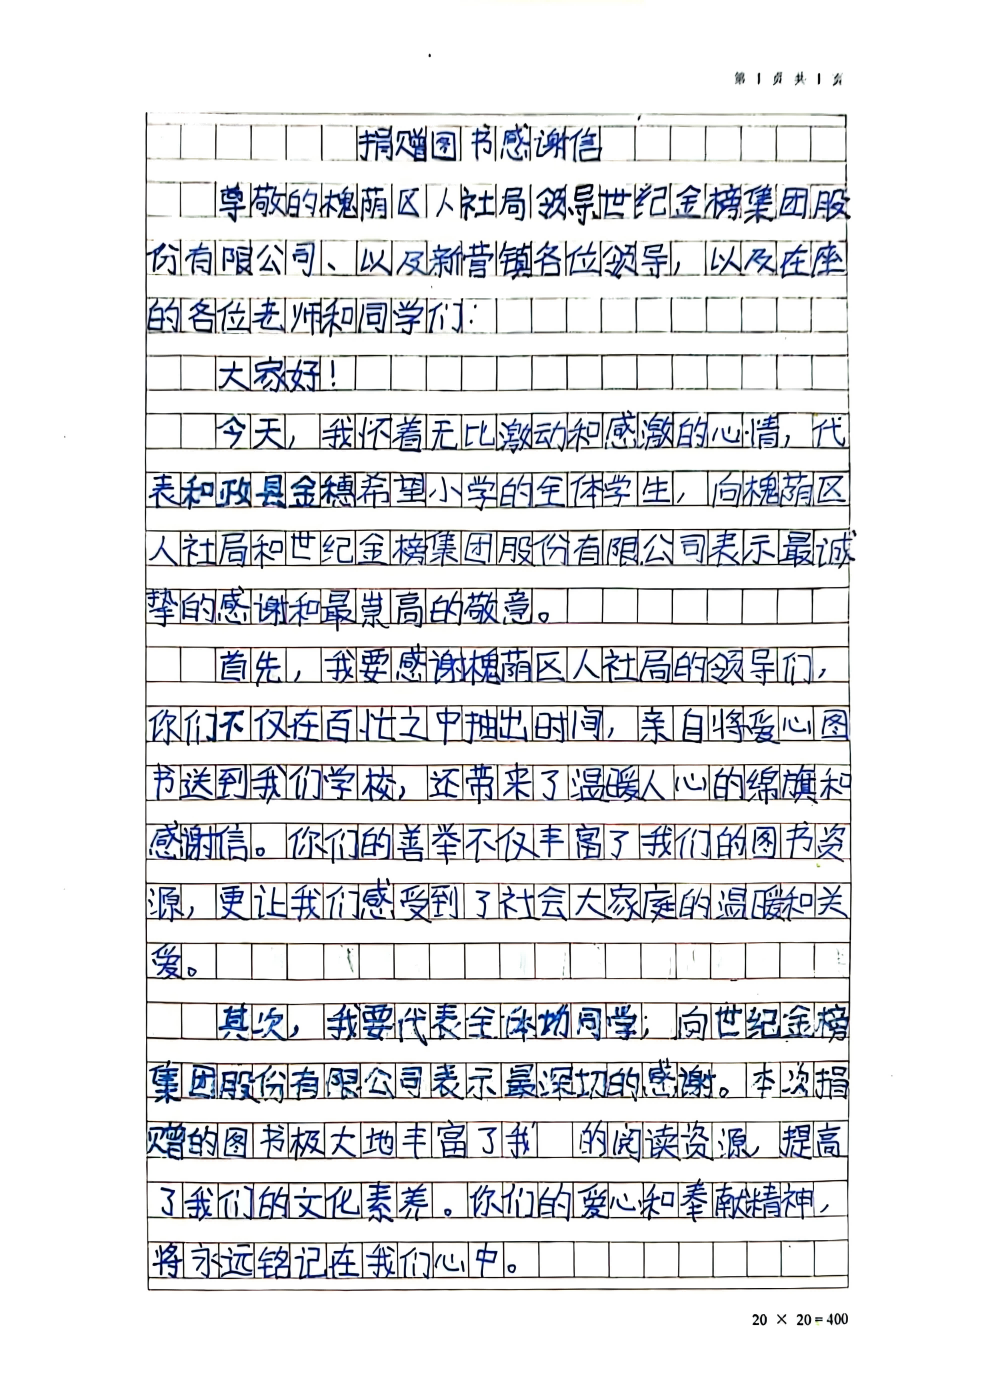 第1页共1页
捐赠图书感谢信
尊敬的槐荫区人社局领导世纪金榜集团股
份有限公司、以及新营镇各位领导，以及在座
的各位老师和同学们：
大家好！
今天，我怀着无比激动和感激的心情，代
表和政县金穗希望小学的全体学生，向槐荫区
人社局和世纪金榜集团股份有限公司表示最诚
挚的感谢和最崇高的敬意。
首先，我要感谢槐荫区人社局的领导们，
你们不仅在百忙之中抽出时间，亲自将爱心图
书送到我们学校，还带来了温暖人心的绵旗和
感谢信。你们的善举不仅丰富了我们的图书资
源，更让我们感受到了社会大家庭的温暖和关
爱。
其次，我要代表全体幼同学；向世纪金榜
集团股份有限公司表示最深切的感谢。本次捐
赠的图书极大地丰富了我 的阅读资源，提高
了我们的文化素养。你们的爱心和奉献精神，
将永远铭记在我们心中。
20 × 20=400